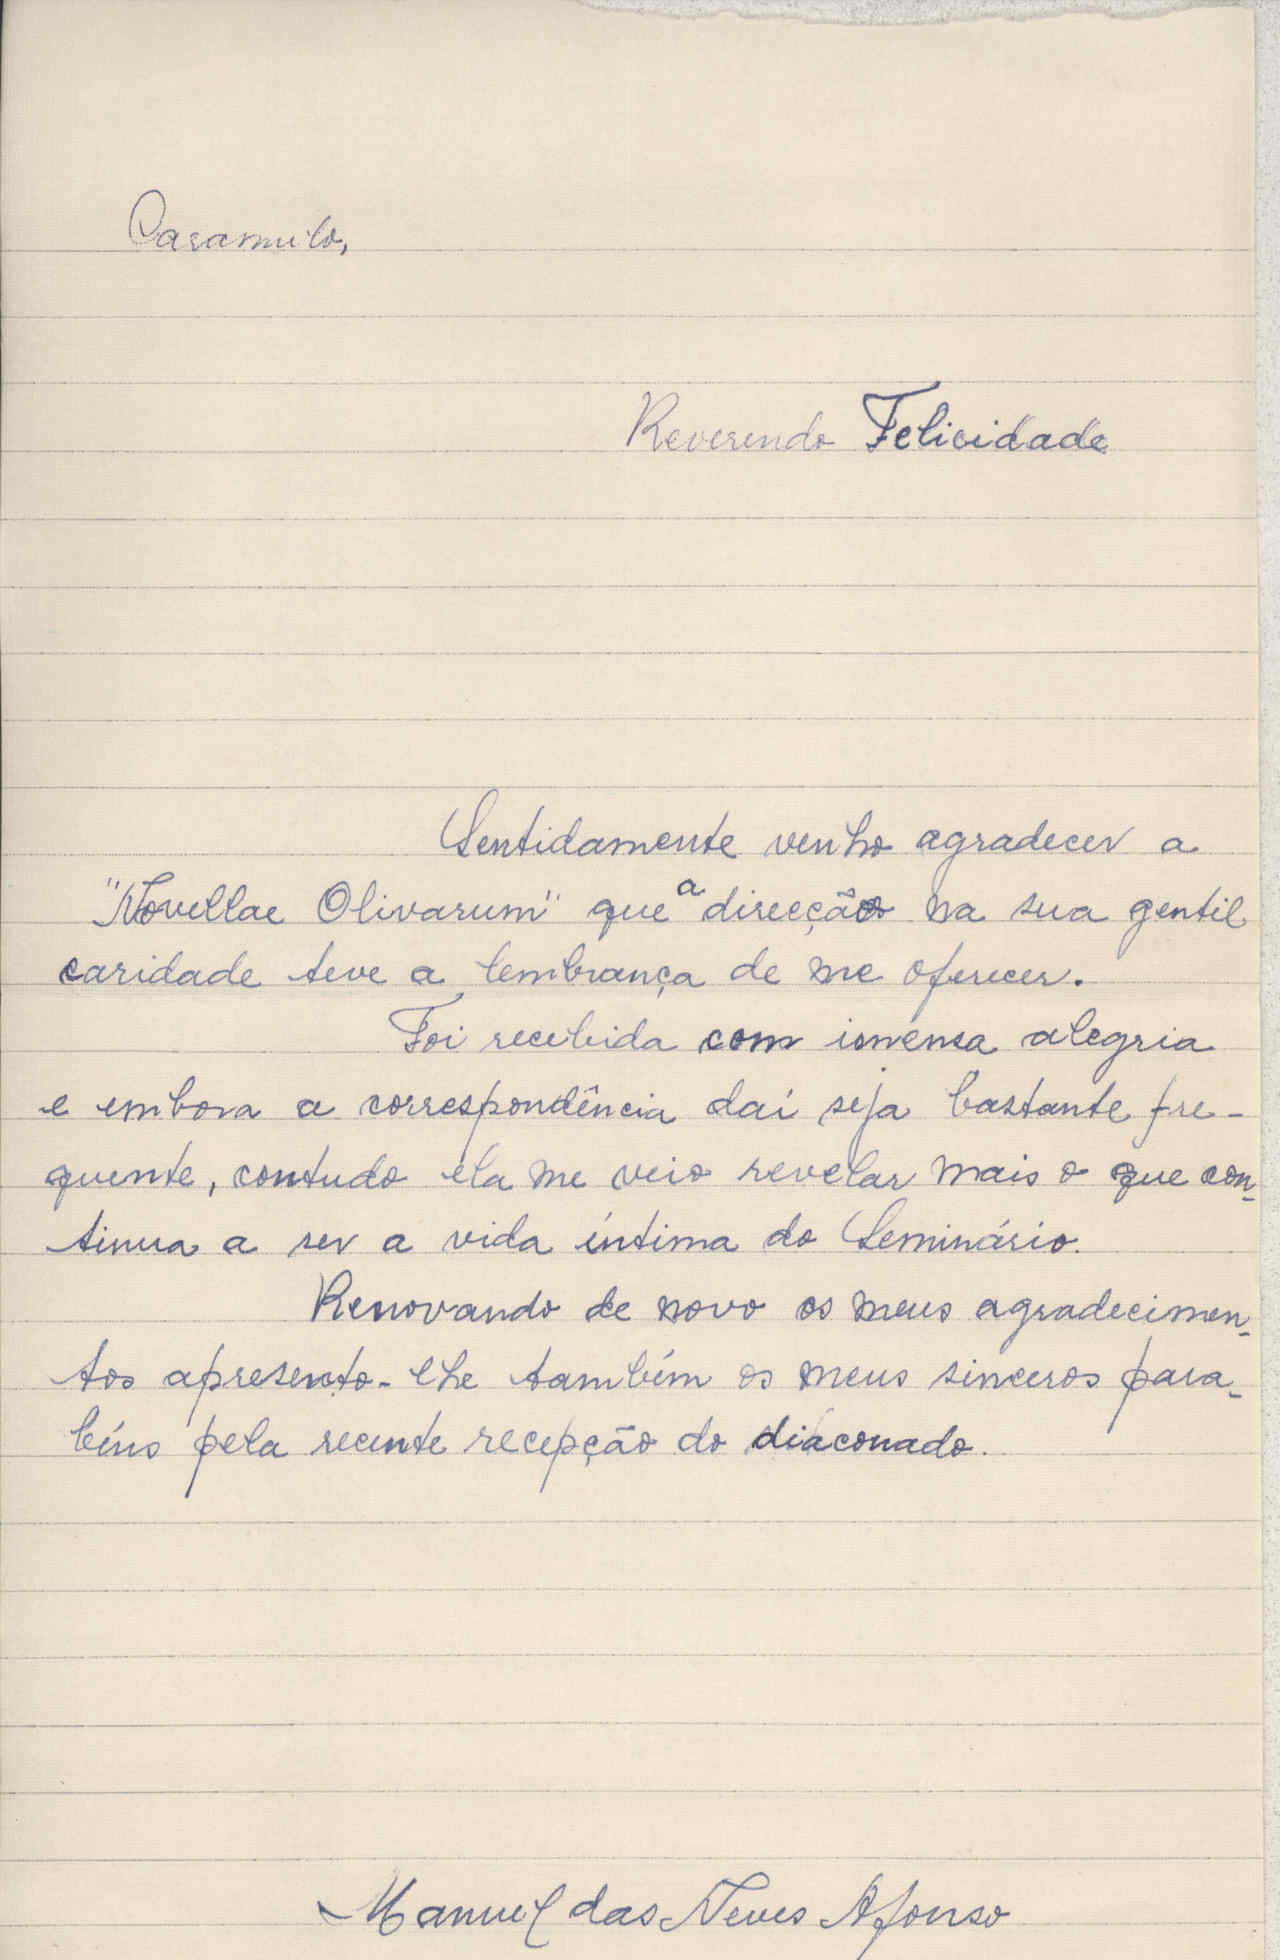 Caramulo,
Reverendo Felicidade
Sentidamente venho agradecer a
"Novellae Olivarum" que a direcção na sua gentil
caridade teve a lembrança de me oferecer.
Foi recebida com imensa alegria
e embora a correspondência daí seja bastante fre-
quente, contudo ela me veio revelar mais o que con-
tinua a ser a vida íntima do Seminário.
Renovando de novo os meus agradecimen-
tos apresento-lhe também os meus sinceros para-
béns pela recente recepção do diaconado.
Manuel das Neves Afonso